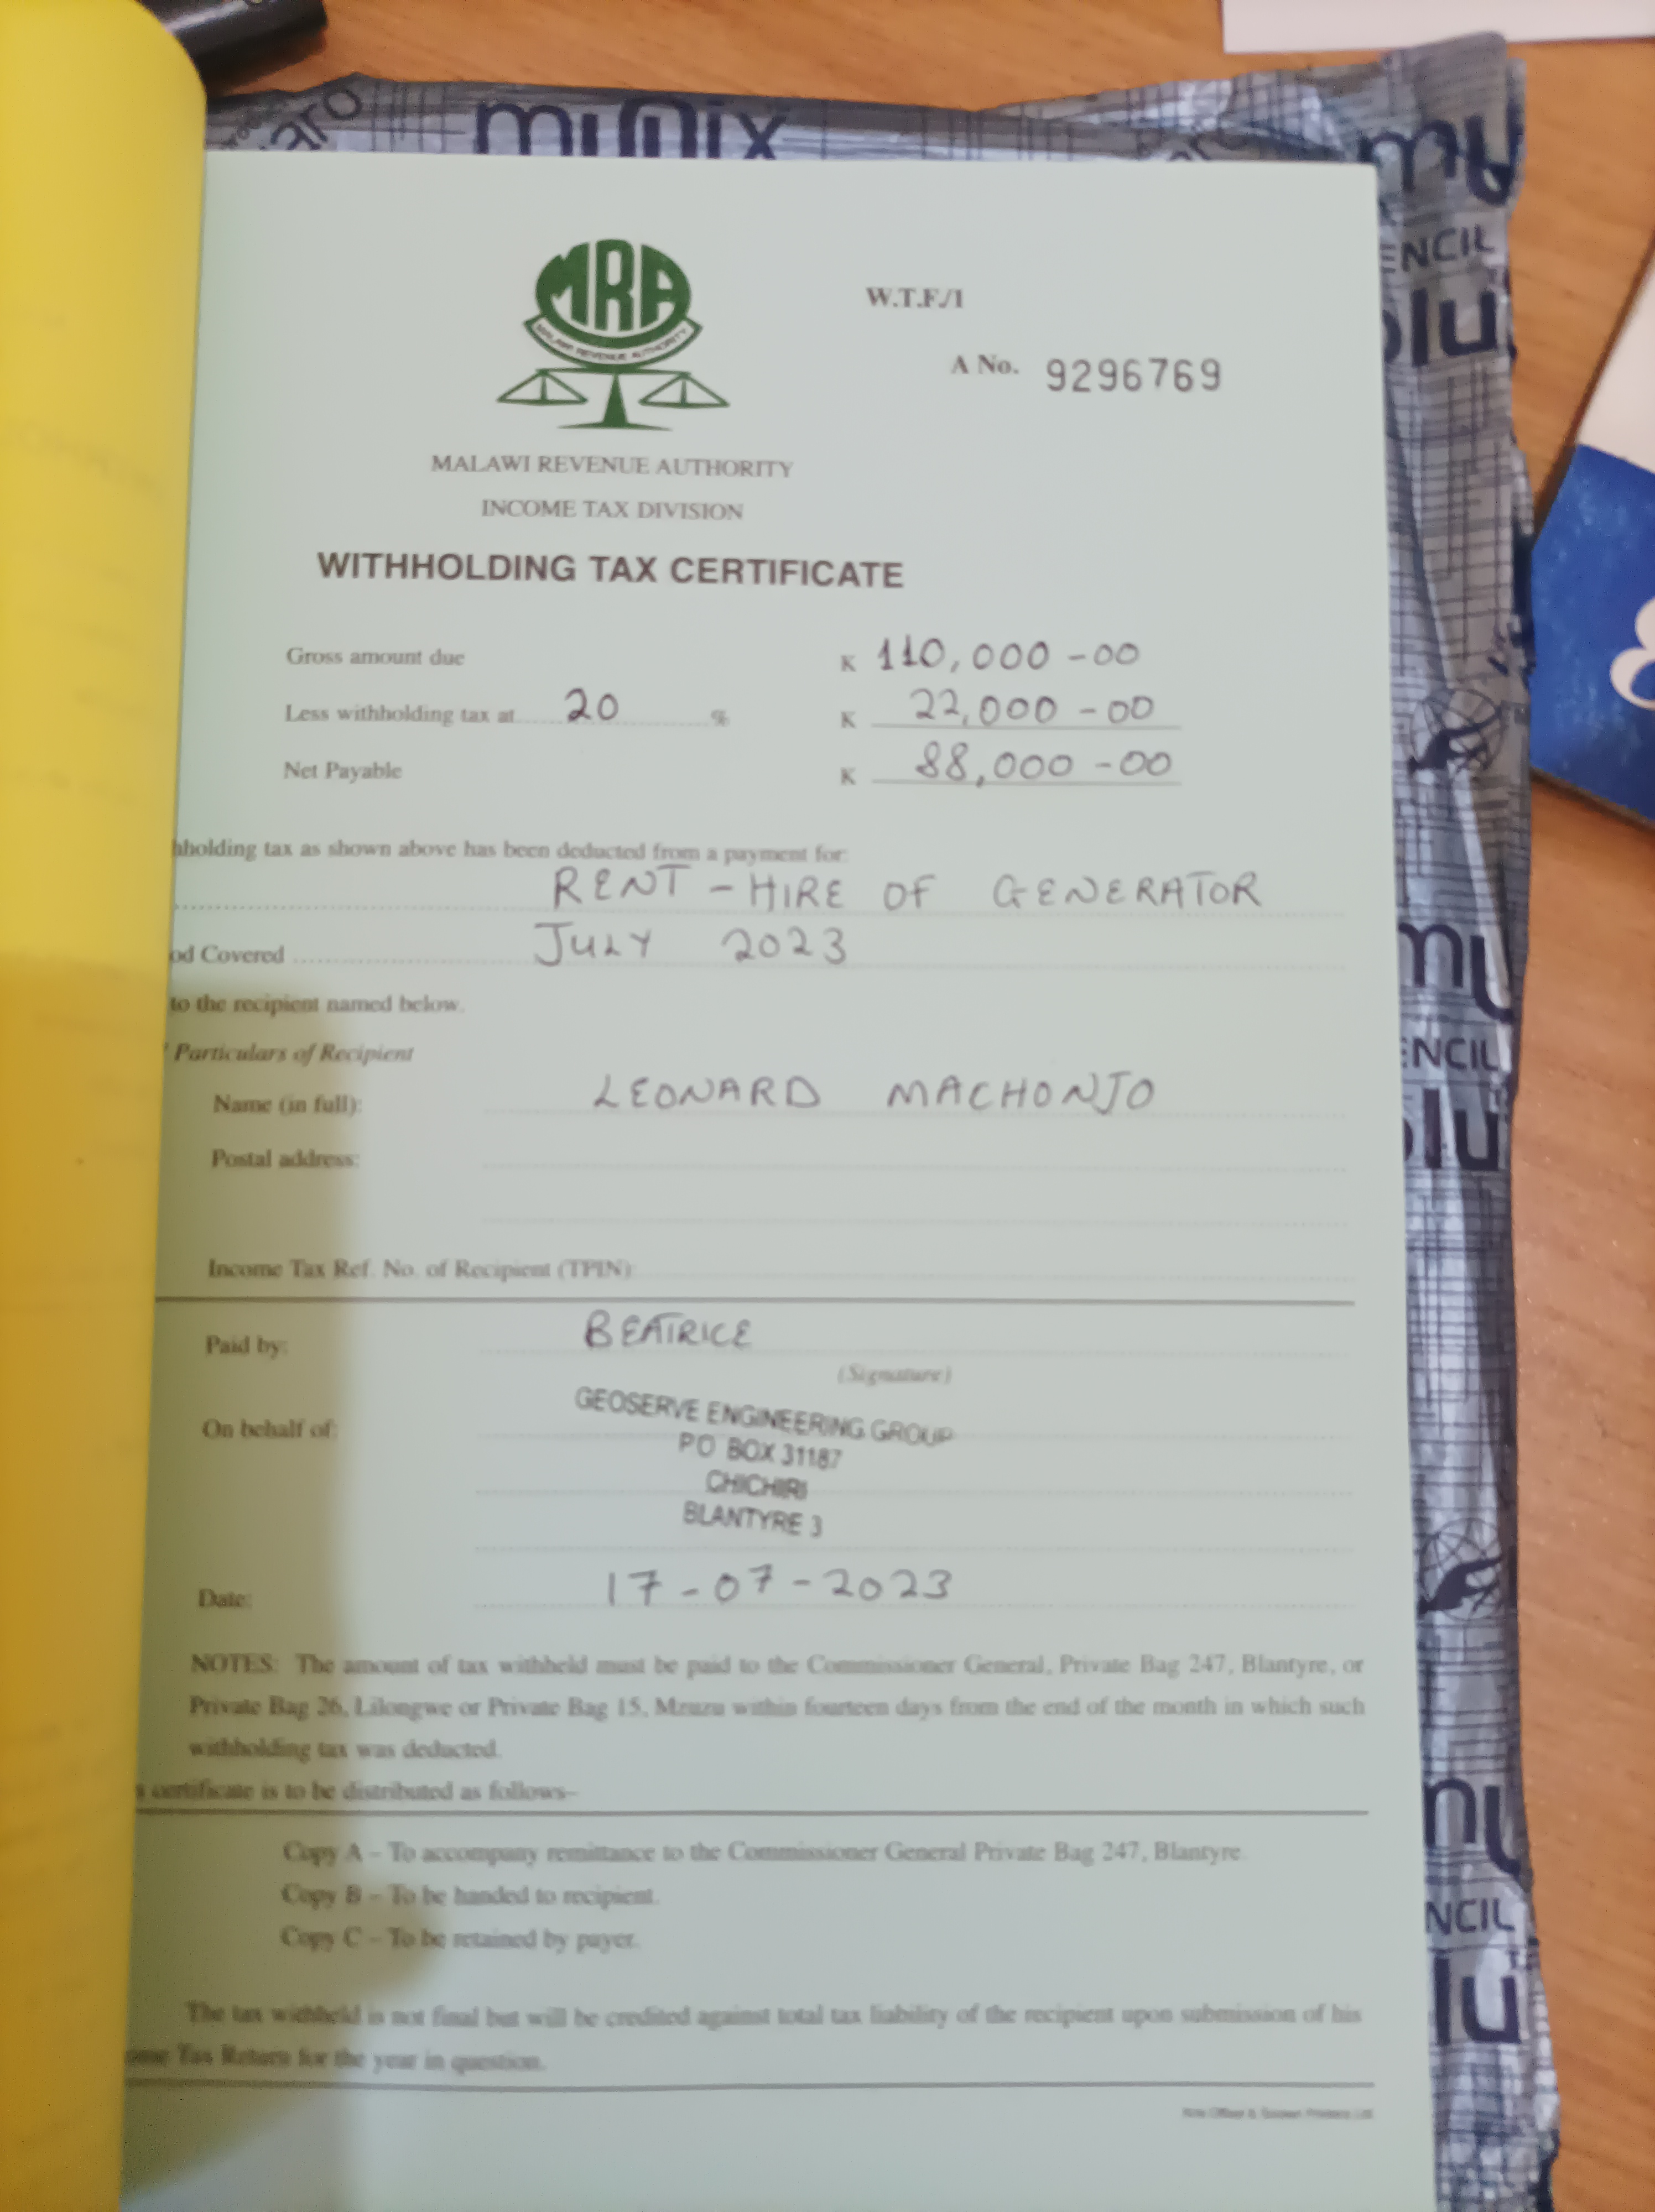 munix
MRA
MALAWI REVENUE AUTHORITY
W.T.F./1
A No. 9296769
MALAWI REVENUE AUTHORITY
INCOME TAX DIVISION
WITHHOLDING TAX CERTIFICATE
Gross amount due K 110,000-00
Less withholding tax at 20 % K 22,000-00
Net Payable K 88,000-00
hholding tax as shown above has been deducted from a payment for:
RENT - HIRE OF GENERATOR
od Covered JULY 2023
to the recipient named below.
Particulars of Recipient
Name (in full): LEONARD MACHONJO
Postal address:
Income Tax Ref. No. of Recipient (TPIN):
Paid by: BEATRICE
(Signature)
On behalf of: GEOSERVE ENGINEERING GROUP
PO BOX 31187
CHICHIRI
BLANTYRE 3
Date: 17-07-2023
NOTES: The amount of tax withheld must be paid to the Commissioner General, Private Bag 247, Blantyre, or
Private Bag 26, Lilongwe or Private Bag 15, Mzuzu within fourteen days from the end of the month in which such
withholding tax was deducted.
certificate is to be distributed as follows–
Copy A – To accompany remittance to the Commissioner General Private Bag 247, Blantyre.
Copy B – To be handed to recipient.
Copy C – To be retained by payer.
The tax withheld is not final but will be credited against total tax liability of the recipient upon submission of his
ome Tax Return for the year in question.
ENCIL
olu
mu
ENCIL
olu
NCIL
lu